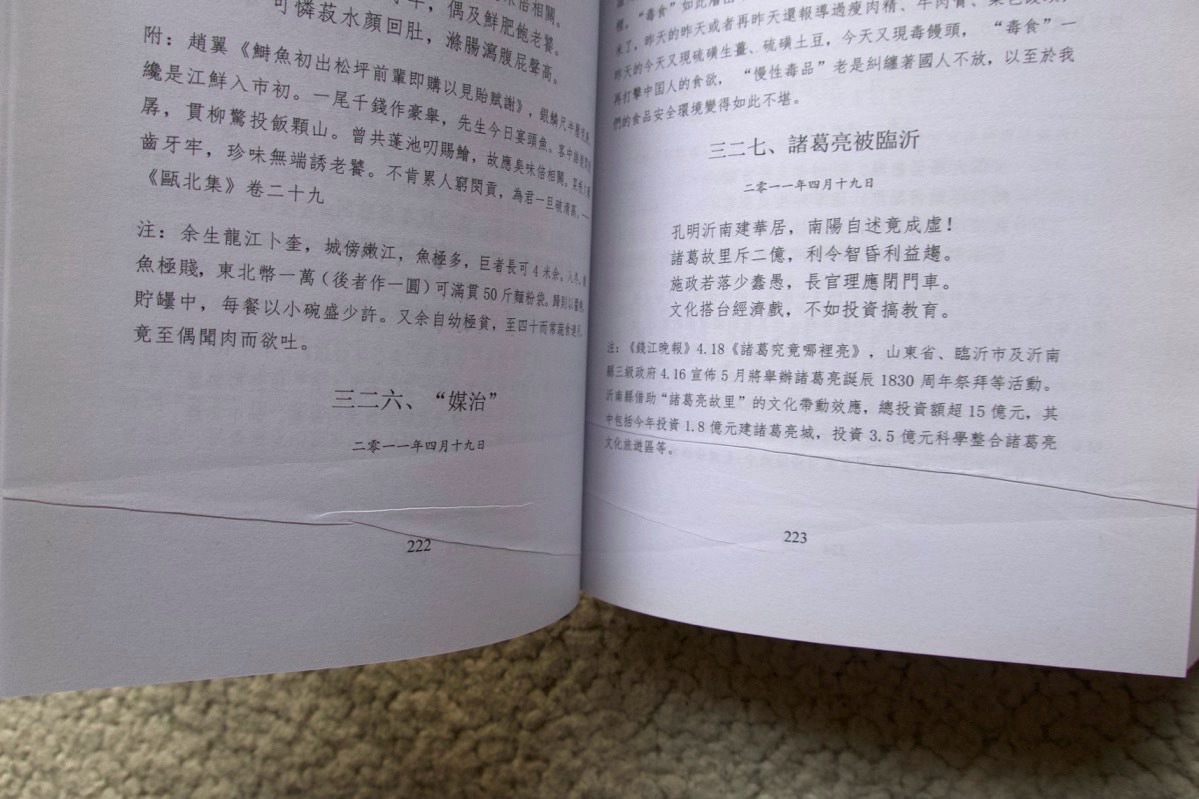 偶及鮮肥飽老饕。
可憐菽水顏回肚，滌腸瀉腹屁聲高。
附：趙翼《鰣魚初出松坪前輩即購以見貽賦謝》，銀鱗尺半
纔是江鮮入市初。一尾千錢作豪舉，先生今日宴頭魚。客中
孱，貫柳驚投飯顆山。曾共蓬池叨賜鱠，故應臭味倍相關。
齒牙牢，珍味無端誘老饕。不肯累人窮閔貢，為君一旦破清齋。——
《甌北集》卷二十九
注：余生龍江卜奎，城傍嫩江，魚極多，巨者長可4米余。入冬，
魚極賤，東北幣一萬（後者作一圓）可滿貫50斤麵粉袋。歸則以
貯罎中，每餐以小碗盛少許。又余自幼極貧，至四十而常蔬食
竟至偶聞肉而欲吐。
三二六、“媒治”
二零一一年四月十九日
222
裡，“毒食”如此
來了，昨天的昨天或者再昨天還報導過瘦肉精、牛肉膏、
昨天的今天又現硫磺生薑、硫磺土豆，今天又現毒饅頭，“毒食”一
再打擊中国人的食欲，“慢性毒品”老是糾纏著國人不放，以至於我
們的食品安全環境變得如此不堪。
三二七、諸葛亮被臨沂
二零一一年四月十九日
孔明沂南建華居，南陽自述竟成虛！
諸葛故里斥二億，利令智昏利益趨。
施政若落少蠢愚，長官理應閉門車。
文化搭台經濟戲，不如投資搞教育。
注：《錢江晚報》4.18《諸葛究竟哪裡亮》，山東省、臨沂市及沂南
縣三級政府4.16宣佈5月將舉辦諸葛亮誕辰1830周年祭拜等活動。
沂南縣借助“諸葛亮故里”的文化帶動效應，總投資額超15億元，其
中包括今年投資1.8億元建諸葛亮城，投資3.5億元科學整合諸葛亮
文化旅遊區等。
223